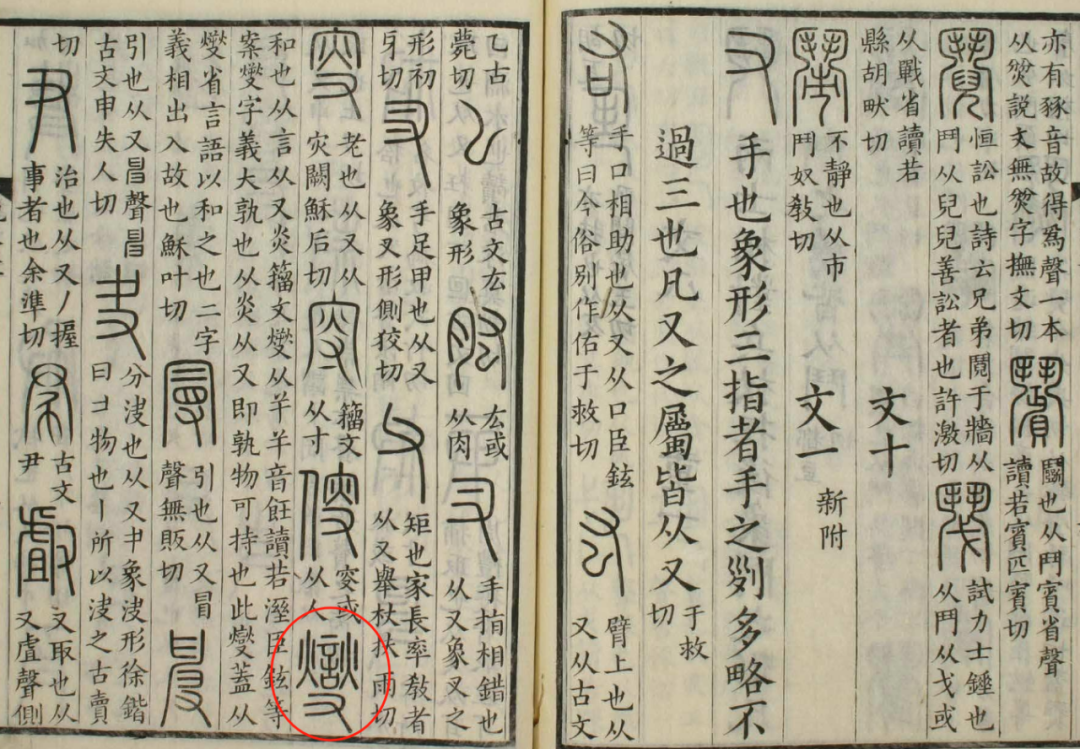 亦有豩音故得爲聲一本
从燹説文無燹字撫文切
鬭也从鬥賓省聲
讀若賓匹賓切
鬩
恒訟也詩云兄弟鬩于牆从
鬥从兒兒善訟者也許激切
試力士錘也
从鬥从戈或
从戰省讀若
縣胡畎切
文十
鬧
不靜也从市
鬥奴教切
文一
新附
又 手也象形三指者手之𠛱多略不
過三也凡又之屬皆从又
于救
切
右
手口相助也从又从口臣鉉
等曰今俗別作佑于救切
厷
臂上也从
又从古文
乙古
薨切
古文厷
象形
肱
厷或
从肉
叉
手指相錯也
从又象叉之
形初
牙切
㕚
手足甲也从又
象叉形側狡切
父
矩也家長率教者
从又舉杖扶雨切
叜
老也从又从
灾闕穌后切
籒文
从寸
傁
叜或
从人
燮
和也从言从又炎籒文燮从𢆉𢆉音飪讀若溼臣鉉等
案燮字義大孰也从炎从又即孰物可持也此燮蓋从
燮省言語以和之也二字
義相出入故也穌叶切
曼
引也从又冒
聲無販切
引也从又聲
古文申失人切
夬
分決也从又象決形徐鍇
曰コ物也丨所以決之古賣
切
尹
治也从又丿握
事者也余準切
古文
尹
又取也从
又虘聲側